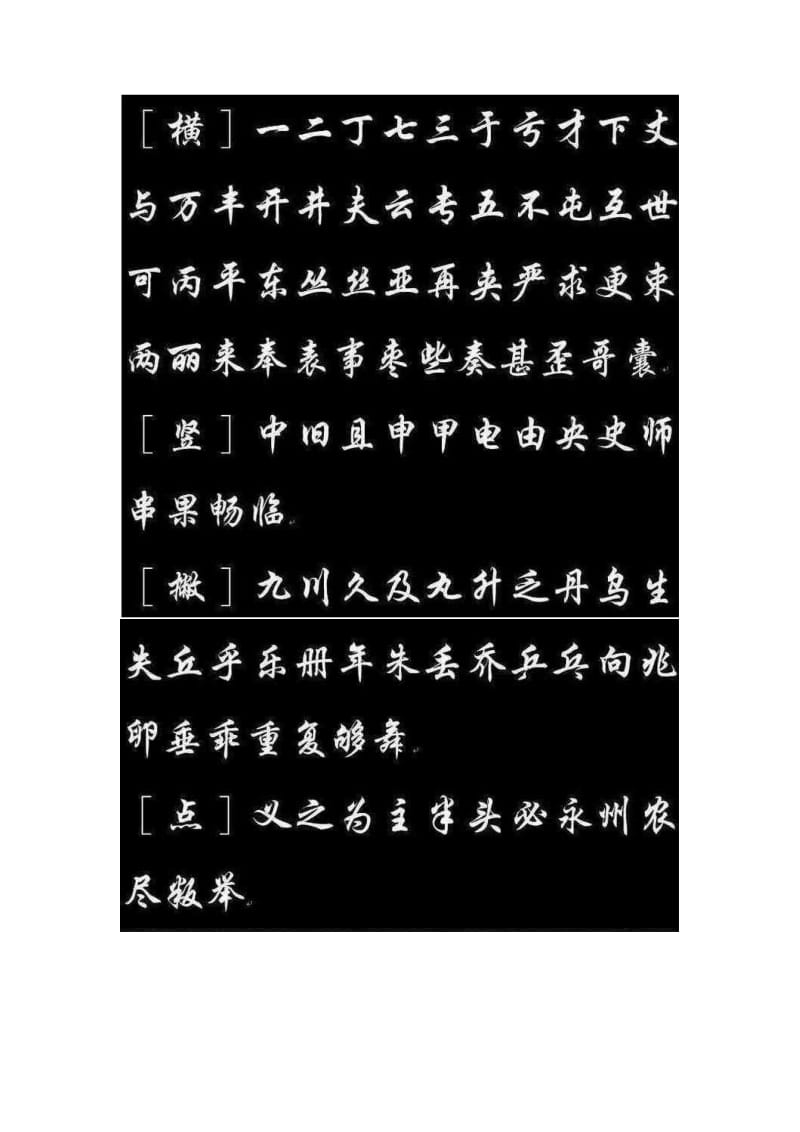 ［横］一二丁七三于亏才下丈
与万丰开井夫云专五不屯互世
可丙平东丛丝亚再夹严求更束
两丽来奉表事枣些奏甚歪哥囊。
［竖］中旧且申甲电由央史师
串果畅临。
［撇］九川久及丸升乏丹乌生
失丘乎乐册年朱丢乔乒乓向兆
卵垂乖重复够舞。
［点］义之为主半头必永州农
尽叛举。